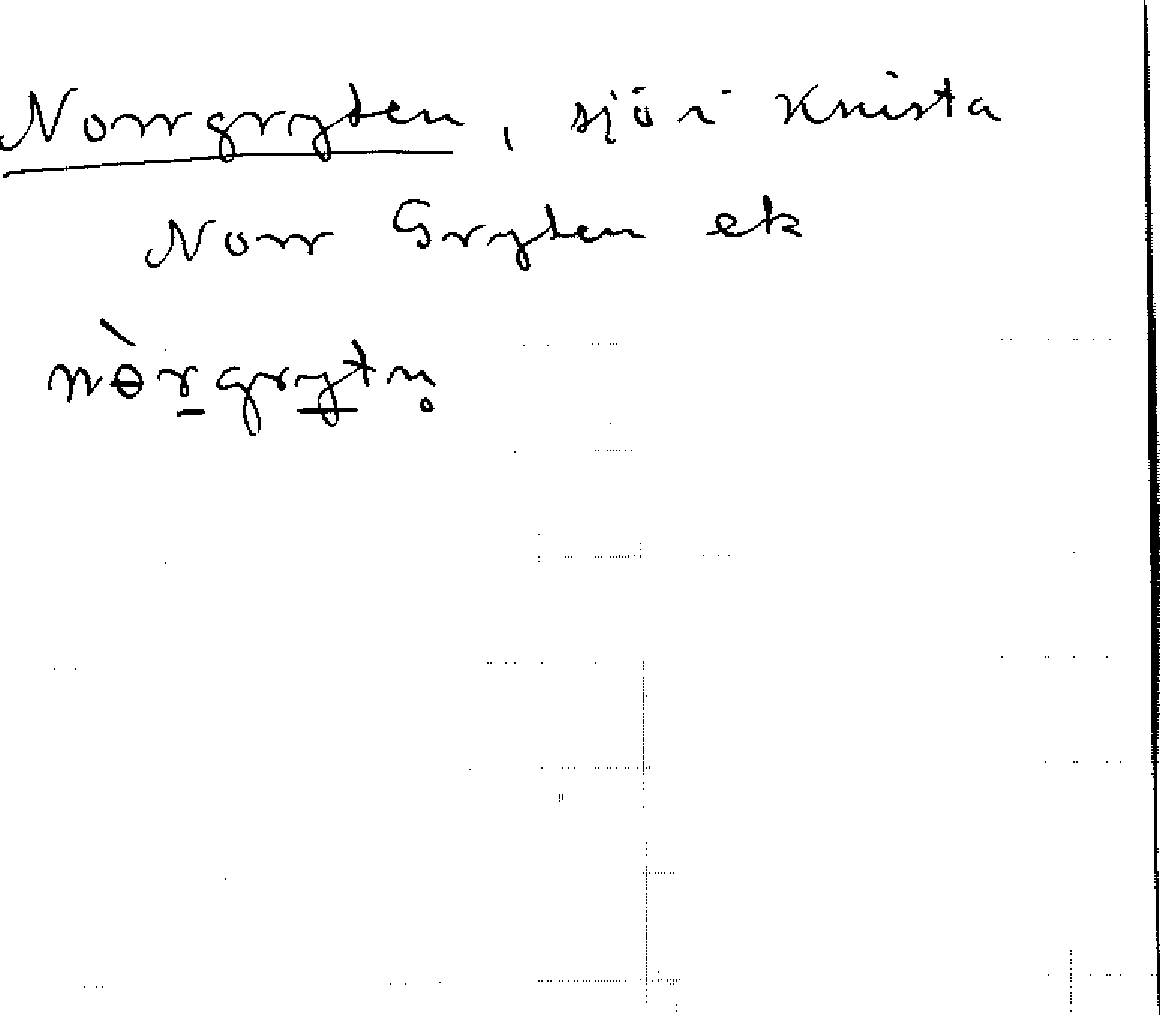 Norrgryten, sjö i Knista
Norr Gryten ek
nɵ̀r̲gry̲tn̥